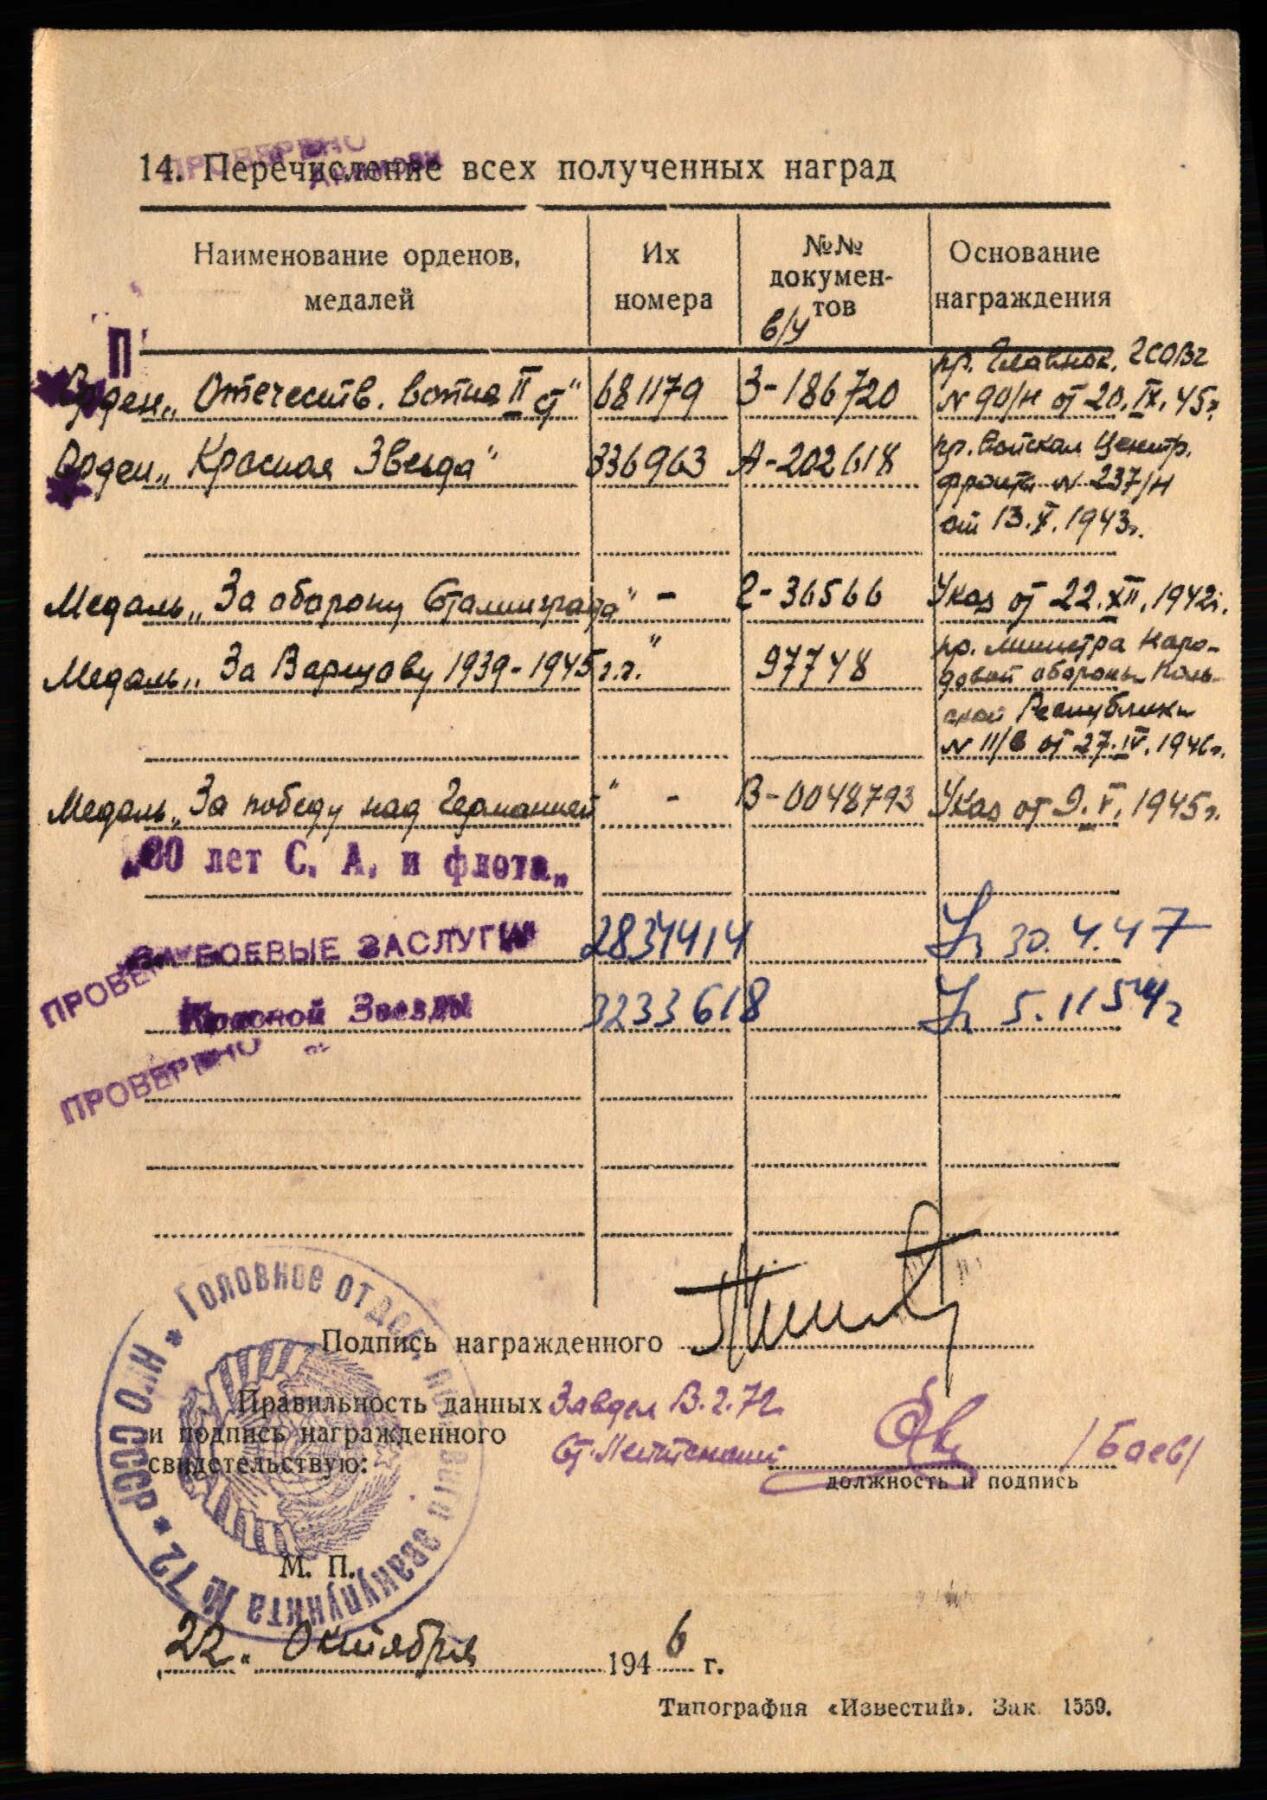 ПРОВЕРЕНО
14. Перечисление всех полученных наград
Наименование орденов, медалей
Их номера
№№ документов
в/у
Основание награждения
П
Орден „Отечеств. войны II ст“ 681179 З-186720 пр. Главнок. ГСОВГ
N 90/н от 20.IX.45г.
Орден „Красная Звезда“ 336963 А-202618 пр. войскам Центр.
фронта N 237/н
от 13.X.1943г.
Медаль „За оборону Сталинграда“ - Е-36566 Указ от 22.XII.1942г.
Медаль „За Варшаву 1939-1945 г.г.“ 97748 пр. министра Наро-
довой обороны Поль-
ской Республики
N 11/в от 27.IV.1946г.
Медаль „За победу над Германией“ - В-0048793 Указ от 9.V.1945г.
„30 лет С. А. и флота„
ЗА БОЕВЫЕ ЗАСЛУГИ 2834414 30.4.47
ПРОВЕРЕНО
Красной Звезды 3233618 5.11 54г
ПРОВЕРЕНО
Подпись награжденного
Правильность данных
и подпись награжденного
свидетельствую:
Ст. Лейтенант /Баев/
должность и подпись
М. П.
СССР * Н К О * Головное отдел. эвакопункта № 72 *
22. Октября 1946 г.
Типография «Известий». Зак. 1559.